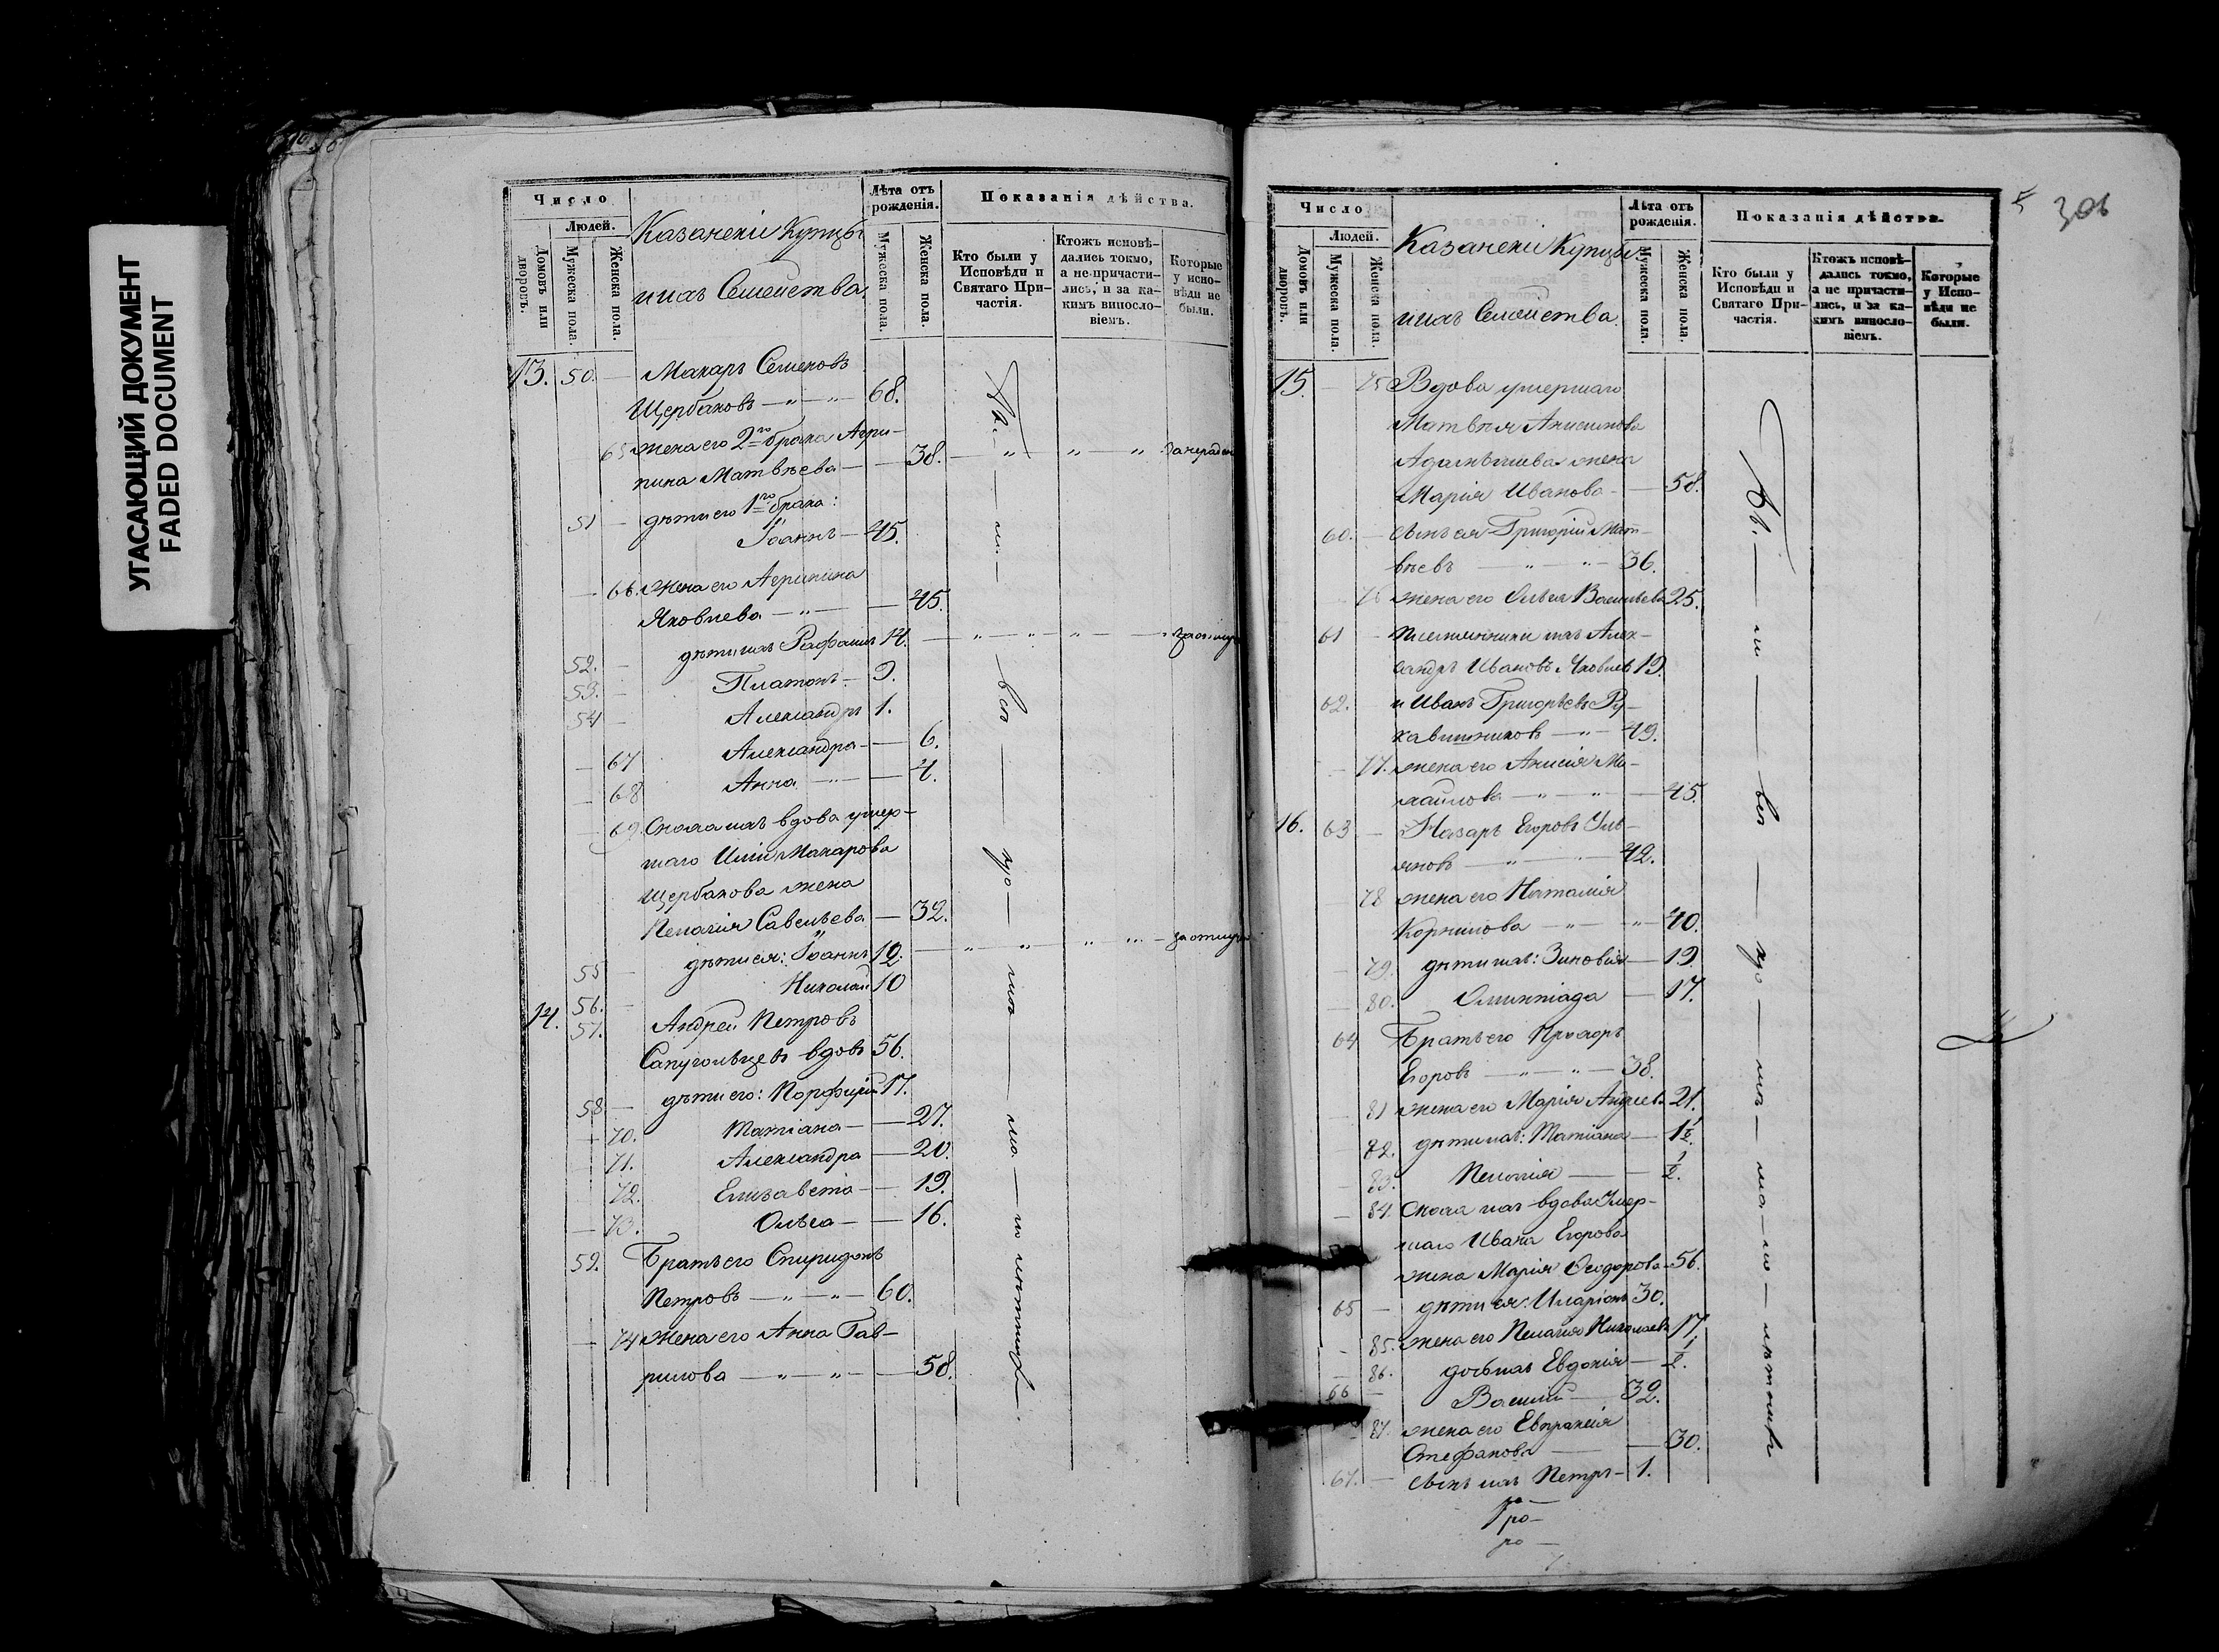 УГАСАЮЩИЙ ДОКУМЕНТ
FADED DOCUMENT
Число
Людей.
Домовъ или дворовъ.
Мужеска пола.
Женска пола.
Казанскіи Купцы
и ихъ Семейства.
Лѣта отъ рожденія.
Мужеска пола.
Женска пола.
Показанія дѣйства.
Кто были у Исповѣди и Святаго Причастія.
Ктожъ исповѣдались токмо, а не причастились, и за какимъ винословіемъ.
Которые у исповѣди не были.
13. 50. — Макаръ Семеновъ
Щербаковъ — „ — „ — 68.
65 жена его 2го брака Агри-
пина Матвѣева — — 38. — „ — „ — „
51 — дѣти его 1го брака:
Іоаннъ — 45.
— 66. Жена его Агрипина
Яковлева — „ — — 45.
52. — дѣти ихъ Рафаилъ 14.
53. — Платонъ — 9.
54 — Александръ 1.
— 67 Александра — — 6.
— 68 Анна — „ — — 4.
— 69. Сноха ихъ вдова умер-
шаго Иліи Макарова
Щербакова жена
Пелагія Савельева — 32.
55 — дѣти ея: Іоаннъ 12.
56. — Николай 10
14. 57. Андрей Петровъ
Сапугольцевъ вдовъ 56.
58 — дѣти его: Порфирій 17.
— 70. Татіана — — 27.
— 71. Александра — 20.
— 72. Елизавета — — 19.
— 73. Ольга — — 16.
59. Братъ его Спиридонъ
Петровъ — „ — „ — 60.
— 74 Жена его Анна Гав-
рилова — „ — „ — — 58.
5 306
Число
Людей.
Домовъ или дворовъ.
Мужеска пола.
Женска пола.
Казанскіи Купцы
и ихъ Семейства.
Лѣта отъ рожденія.
Мужеска пола.
Женска пола
Показанія дѣйства.
Кто были у Исповѣди и Святаго Причастія.
Ктожъ исповѣдались токмо, а не причастились, и за какимъ винословіемъ.
Которые у Исповѣди не были.
15. — 75 Вдова умершаго
Матвѣя Анисимова
жена
Марія Иванова — — 58.
60. — сынъ ея Григорій Мат-
вѣевъ — „ — „ — 36.
76 жена его Ольга Васильева 25.
61 — племянники ихъ Алек-
сандръ Ивановъ Яковлевъ 19.
62. и Иванъ Григорьевъ Ру-
кавишниковъ — „ — 49.
— 77. жена его Анисія Ми-
хайлова — „ — „ — — 45.
16. 63 — Назаръ Егоровъ Уль-
яновъ — „ — „ — 42.
78 жена его Наталія
Корнилова — „ — „ — 40.
— 79. дѣти ихъ: Зиновія — 19.
— 80. Олимпіада — 17.
64 Братъ его Прохоръ
Егоровъ — „ — „ — 38.
— 81 жена его Марія Андреева 21.
— 82. дѣти ихъ: Татіана — 1½.
— 83. Пелагія — — ½.
— 84. Сноха ихъ вдова Умер-
шаго Ивана Егорова
жена Марія Ѳеодорова — 56.
65 — дѣти ея: Иларіонъ 30.
— 85. жена его Пелагія Николаева 17.
— 86. дочь ихъ Евдокія — ½.
66 — Василій — 32.
— 87. жена его Евпраксія
Стефанова — — 30.
67. — сынъ ихъ Петръ — 1.